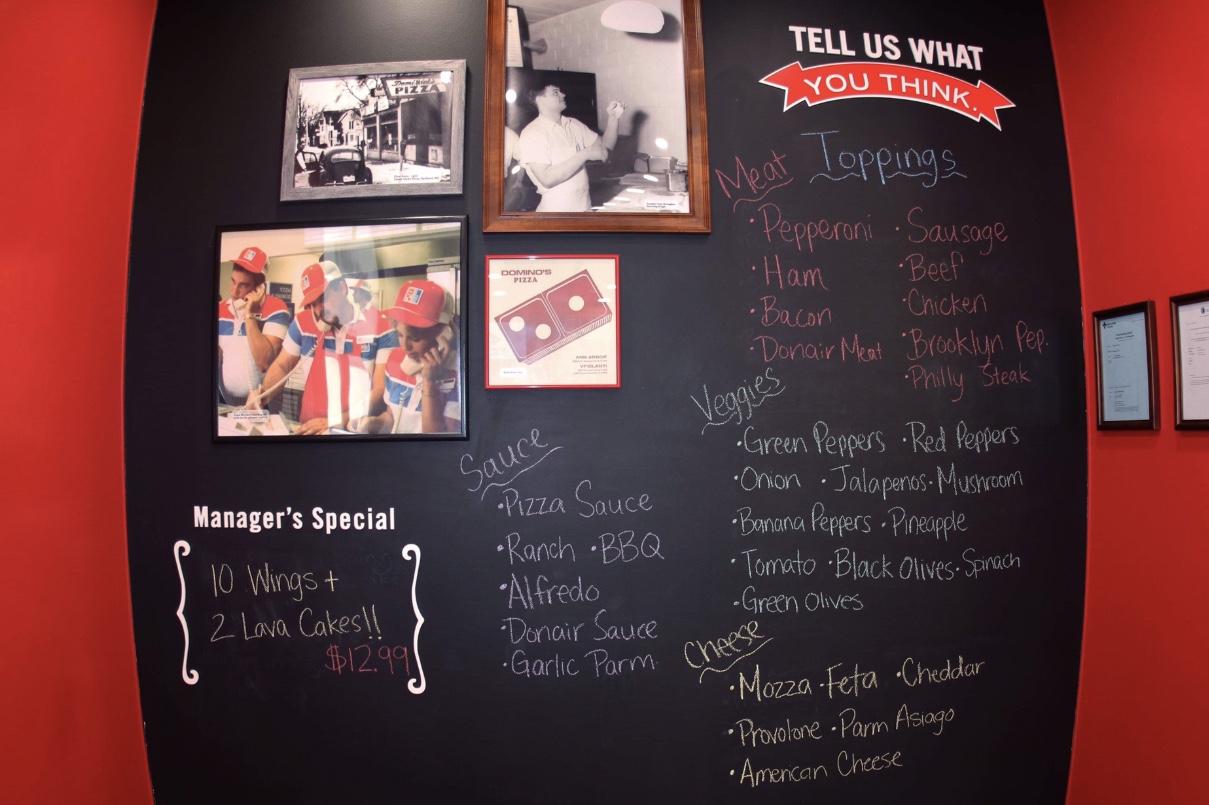 TELL US WHAT
YOU THINK.
Toppings
Meat
• Pepperoni • Sausage
• Ham • Beef
• Bacon • Chicken
• Donair Meat • Brooklyn Pep.
• Philly Steak
Veggies
• Green Peppers • Red Peppers
• Onion • Jalapenos • Mushroom
• Banana Peppers • Pineapple
• Tomato • Black Olives • Spinach
• Green Olives
Cheese
• Mozza • Feta • Cheddar
• Provolone • Parm Asiago
• American Cheese
Sauce
• Pizza Sauce
• Ranch • BBQ
• Alfredo
• Donair Sauce
• Garlic Parm
Manager's Special
10 Wings +
2 Lava Cakes!!
$12.99
PIZZA
DOMINO'S
PIZZA
ANN ARBOR
YPSILANTI